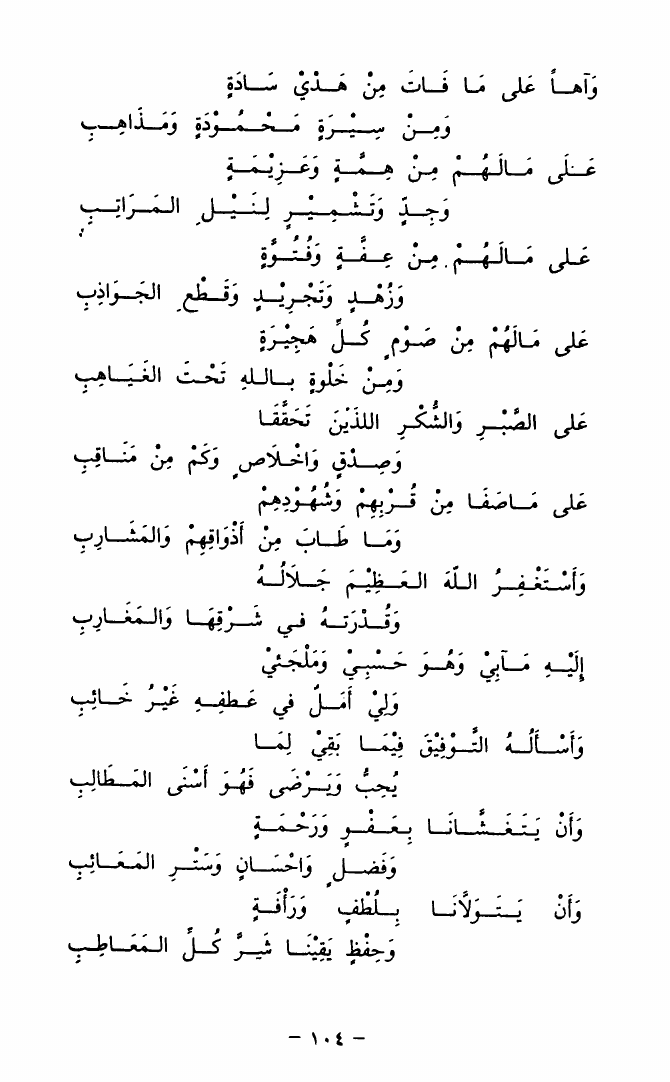 وَآهاً عَلى مَا فَاتَ مِنْ هَدْيْ سَادَةٍ
وَمِنْ سِيْرَةٍ مَحْمُوْدَةٍ وَمَذَاهِبِ
عَلَى مَالَهُمْ مِنْ هِمَّةٍ وَعَزِيْمَةٍ
وَجِدٍّ وَتَشْمِيْرٍ لِنَيْلِ المَرَاتِبِ
عَلى مَالَهُمْ مِنْ عِفَّةٍ وَفُتُوَّةٍ
وَزُهْدٍ وَتَجْرِيْدٍ وَقَطْعِ الجَوَاذِبِ
عَلى مَالَهُمْ مِنْ صَوْمِ كُلِّ هَجِيْرَةٍ
وَمِنْ خَلْوةٍ بِاللهِ تَحْتَ الغَيَاهِبِ
عَلى الصَّبْرِ وَالشُّكْرِ اللذَيْنِ تَحَقَّقَا
وَصِدْقٍ وَاخْلَاصٍ وَكَمْ مِنْ مَنَاقِبِ
عَلى مَاصَفَا مِنْ قُرْبِهِمْ وَشُهُوْدِهِمْ
وَمَا طَابَ مِنْ أَذْوَاقِهِمْ وَالمَشَارِبِ
وَأَسْتَغْفِرُ اللّهَ العَظِيْمَ جَلَالُهُ
وَقُدْرَتهُ في شَرْقِهَا وَالمَغَارِبِ
إِلَيْهِ مَآبِيْ وَهُوَ حَسْبِيْ وَمَلْجَئيْ
وَلِيْ أَمَلٌ في عَطفِهِ غَيْرُ خَائِبِ
وَأَسْأَلُهُ التَّوْفِيْقَ فِيْمَا بَقِيْ لِمَا
يُحِبُّ وَيَرْضَى فَهُوَ أَسْنَى المَطَالِبِ
وَأَنْ يَتَغَشَّانَا بِعَفْوٍ وَرَحْمَةٍ
وَفَضلٍ وَاحْسَانٍ وَسَتْرِ المَعَائبِ
وَأَنْ يَتَوَلَّانَا بِلُطْفٍ وَرَأْفَةٍ
وَحِفْظٍ يَقِيْنَا شَرَّ كُلِّ المَعَاطِبِ
- ١٠٤ -